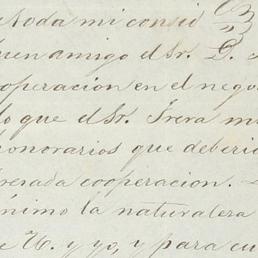 toda mi consi
buen amigo el Sr. D.
operacion en el nego
lo que el Sr. Frera m
honorarios que deberi
presada cooperacion. —
ánimo la naturaleza
e U. y yo, y para cu